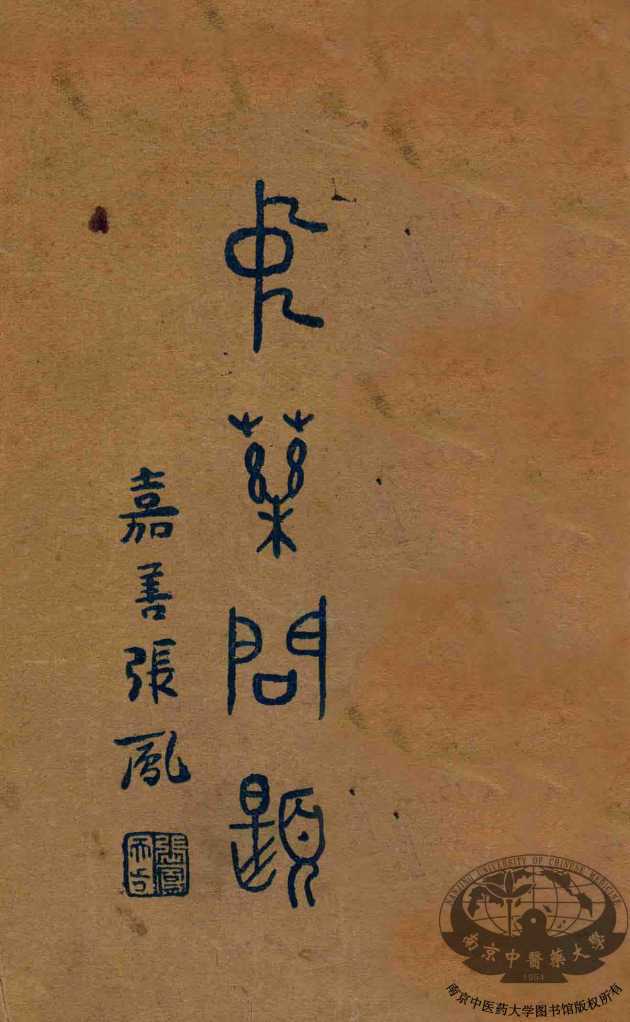 中藥問題
嘉善張鳳
張鳳
NANJING UNIVERSITY OF CHINESE MEDICINE
南京中醫藥大學
1954
南京中医药大学图书馆版权所有